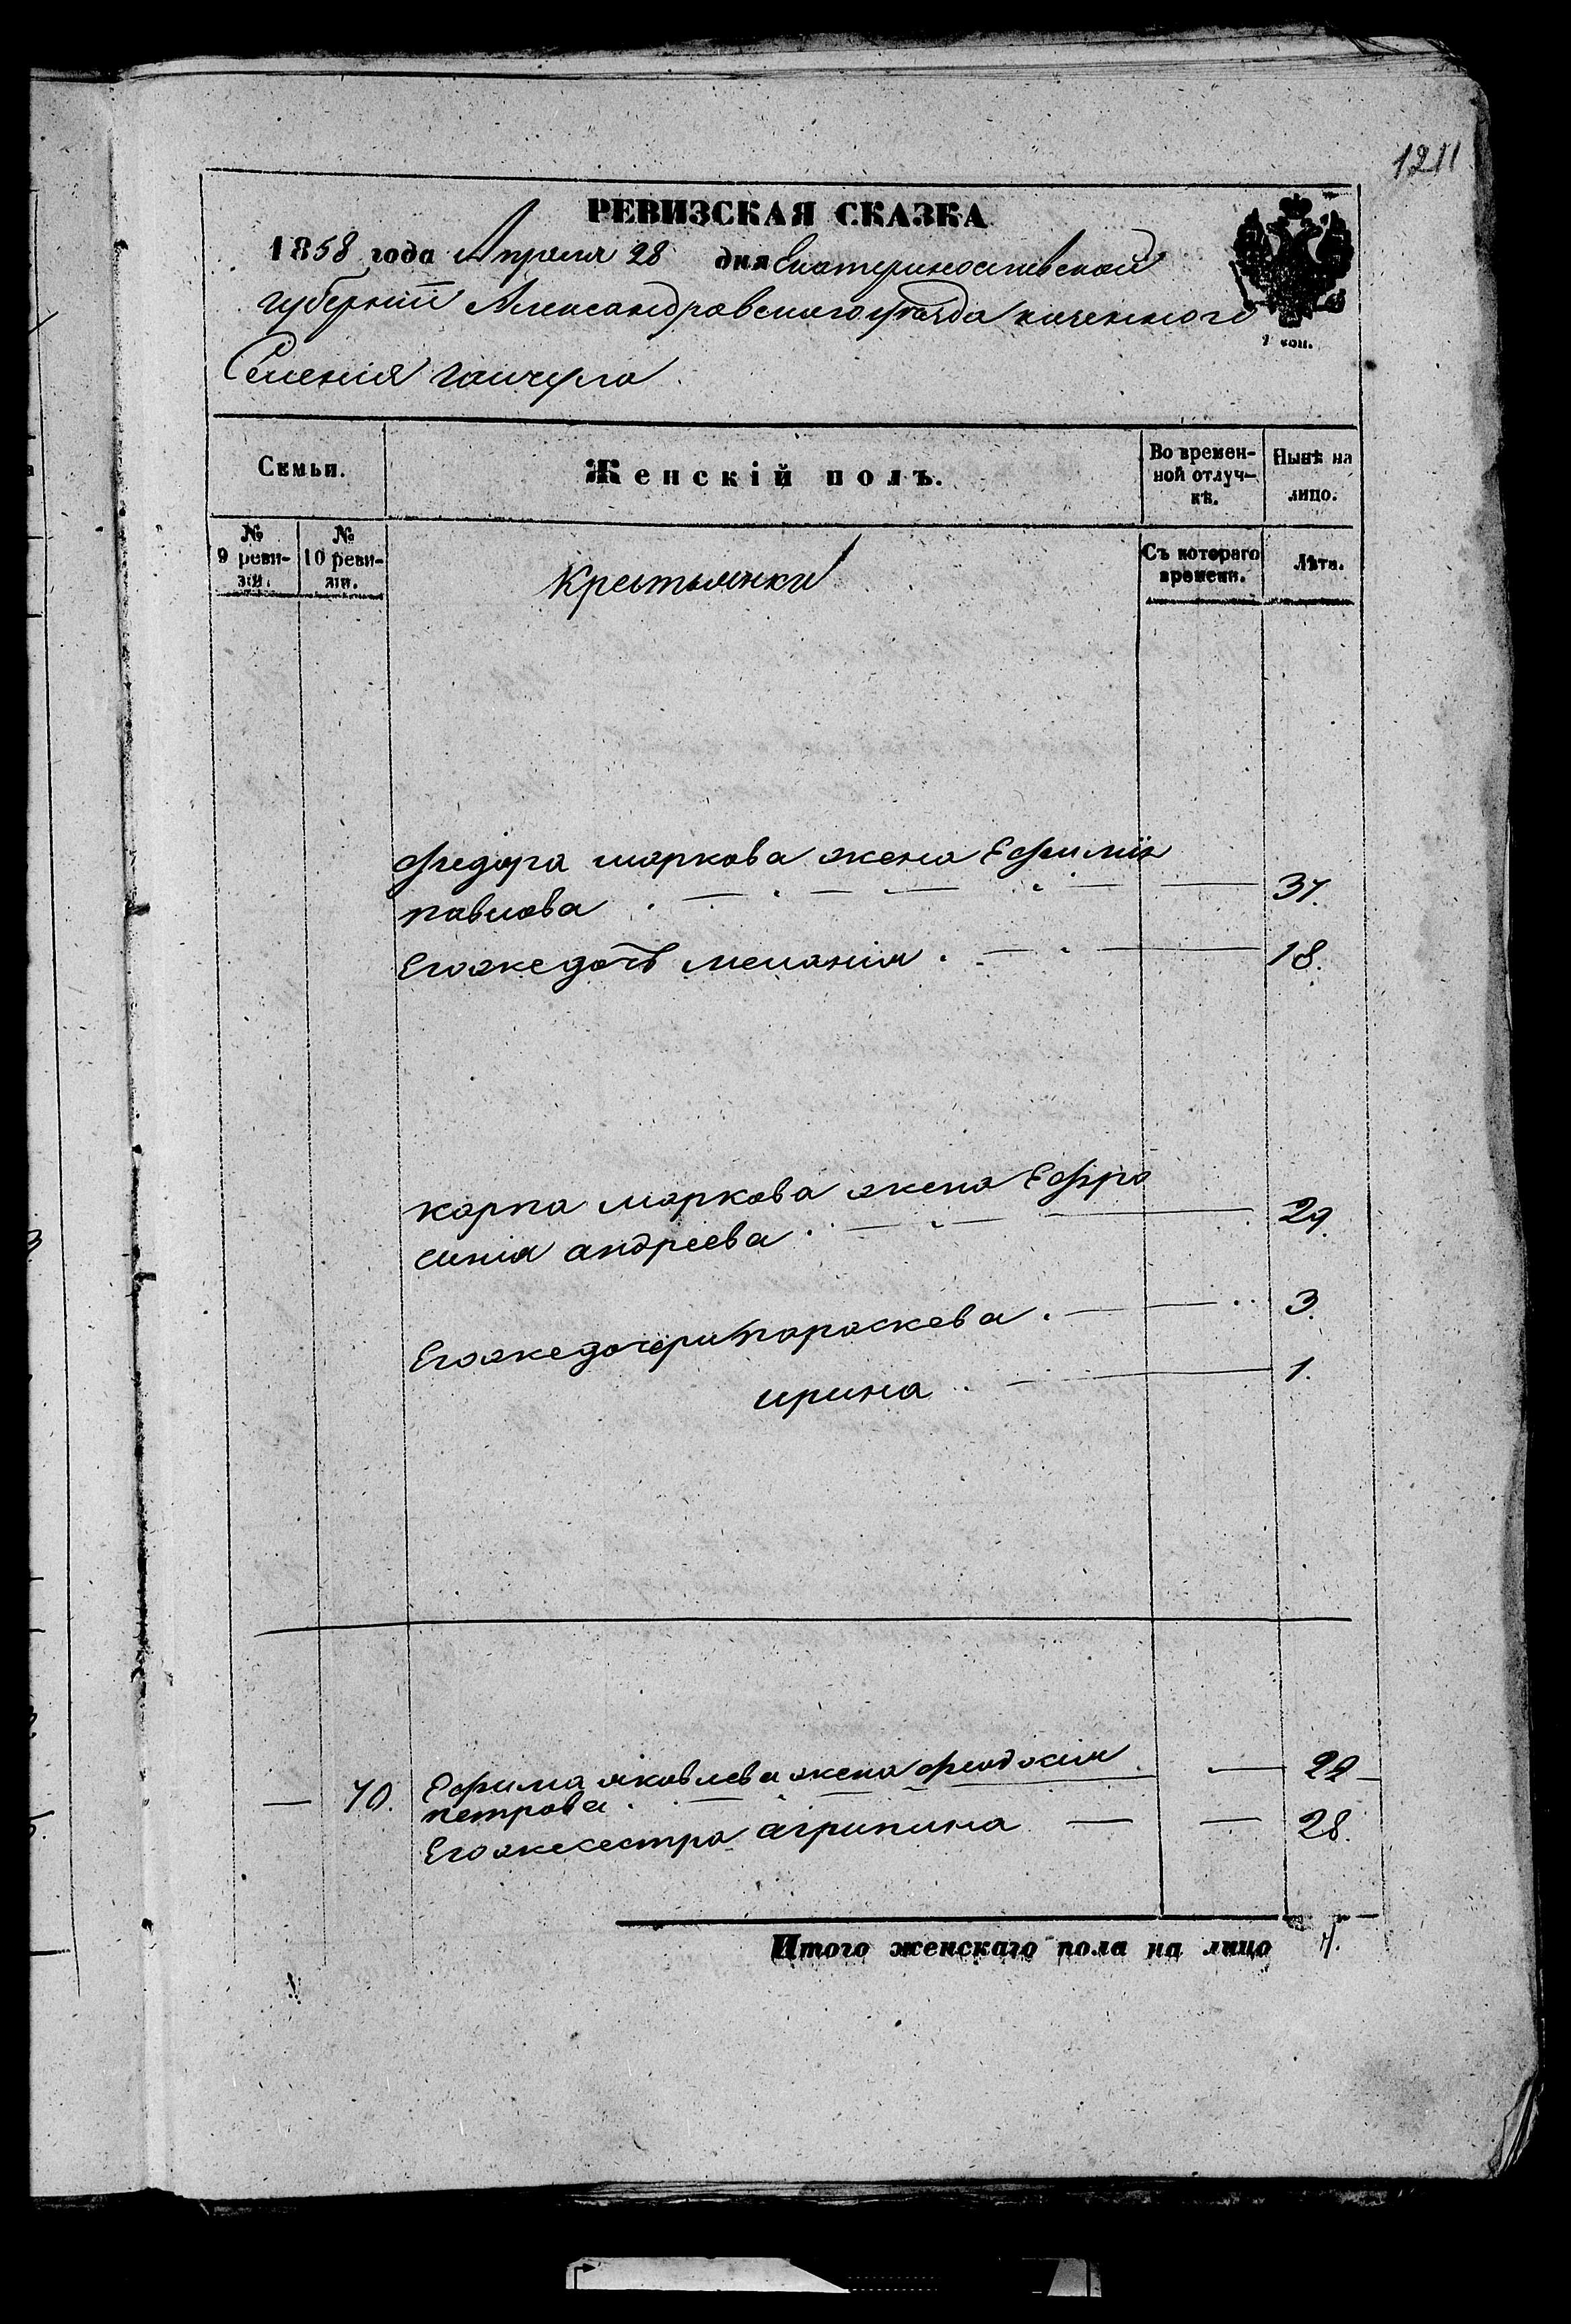 1211
РЕВИЗСКАЯ СКАЗКА
1858 года Апреля 28 дня Екатеринославской
губерніи Александровского уезда казенного
Селенія гайчура
1 коп.
Семьи.
Женскій полъ.
Во времен-
ной отлуч-
кѣ.
Нынѣ на
лицо.
№
9 реви-
зіи.
№
10 реви-
зіи.
Съ котораго
времени.
Лѣта.
Крестьянки
Федора маркова жена Ефимія
павлова 37.
Егожедочь меланія 18.
карпа маркова жена Ефро
синія андреева 29.
Егожедочери параскева 3.
ирина 1.
70. Ефима яковлева жена феодосія 22
петрова
Егожесестра агрипина 28.
Итого женскаго пола на лицо 7.